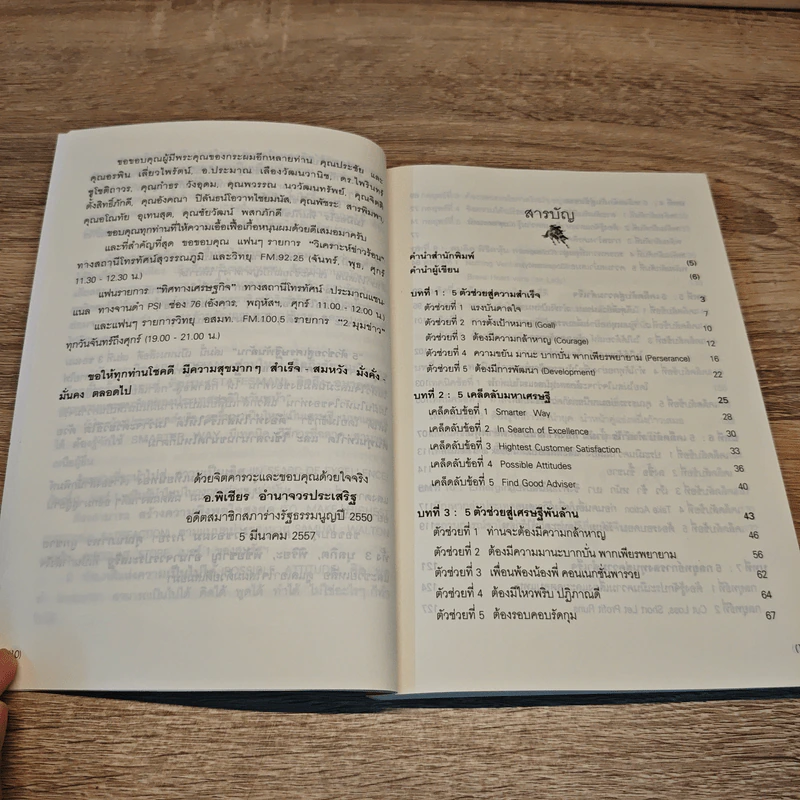 ขอขอบคุณผู้มีพระคุณของกระผมอีกหลายท่าน คุณประชัย และ
คุณอรพิน เลี่ยวไพรัตน์, อ.ประมาณ เลืองวัฒนะวานิช, ดร.ไพรินทร์
ชูโชติถาวร, คุณกำธร วังอุดม, คุณพวรรณ นววัฒนทรัพย์, คุณจิตติ
ตั้งสิทธิ์ภักดี, คุณอังคณา ปิลันธน์โอวาทไชยมนัส, คุณพัชระ สารพิมพา,
คุณอโณทัย อุเทนสุต, คุณชัยวัฒน์ พสกภักดี
ขอบคุณทุกท่านที่ให้ความเอื้อเฟื้อเกื้อหนุนผมด้วยดีเสมอมาครับ
และที่สำคัญที่สุด ขอขอบคุณ แฟนๆ รายการ "วิเคราะห์ข่าวร้อน"
ทางสถานีโทรทัศน์สุวรรณภูมิ และวิทยุ FM.92.25 (จันทร์, พุธ, ศุกร์
11.30 - 12.30 น.)
แฟนรายการ "ทิศทางเศรษฐกิจ" ทางสถานีโทรทัศน์ ประมาณแชน
แนล ทางจานดำ PSI ช่อง 76 (อังคาร, พฤหัสฯ, ศุกร์ 11.00 - 12.00 น.)
และแฟนๆ รายการวิทยุ อสมท. FM.100.5 รายการ "2 มุมข่าว"
ทุกวันจันทร์ถึงศุกร์ (19.00 - 21.00 น.)
ขอให้ทุกท่านโชคดี มีความสุขมากๆ สำเร็จ - สมหวัง มั่งคั่ง -
มั่นคง ตลอดไป
ด้วยจิตคารวะและขอบคุณด้วยใจจริง
อ.พิเชียร อำนาจวรประเสริฐ
อดีตสมาชิกสภาร่างรัฐธรรมนูญปี 2550
5 มีนาคม 2557
10)
สารบัญ
คำนำสำนักพิมพ์ (5)
คำนำผู้เขียน (6)
บทที่ 1 : 5 ตัวช่วยสู่ความสำเร็จ 3
ตัวช่วยที่ 1 แรงบันดาลใจ 7
ตัวช่วยที่ 2 การตั้งเป้าหมาย (Goal) 10
ตัวช่วยที่ 3 ต้องมีความกล้าหาญ (Courage) 12
ตัวช่วยที่ 4 ความขยัน มานะ บากบั่น พากเพียรพยายาม (Perserance) 16
ตัวช่วยที่ 5 ต้องมีการพัฒนา (Development) 22
บทที่ 2 : 5 เคล็ดลับมหาเศรษฐี 25
เคล็ดลับข้อที่ 1 Smarter Way 28
เคล็ดลับข้อที่ 2 In Search of Excellence 30
เคล็ดลับข้อที่ 3 Hightest Customer Satisfaction 33
เคล็ดลับข้อที่ 4 Possible Attitudes 36
เคล็ดลับข้อที่ 5 Find Good Adviser 40
บทที่ 3 : 5 ตัวช่วยสู่เศรษฐีพันล้าน 43
ตัวช่วยที่ 1 ท่านจะต้องมีความกล้าหาญ 46
ตัวช่วยที่ 2 ต้องมีความมานะบากบั่น พากเพียรพยายาม 56
ตัวช่วยที่ 3 เพื่อนพ้องน้องพี่ คอนเนกชั่นพารวย 62
ตัวช่วยที่ 4 ต้องมีไหวพริบ ปฏิภาณดี 64
ตัวช่วยที่ 5 ต้องรอบคอบรัดกุม 67